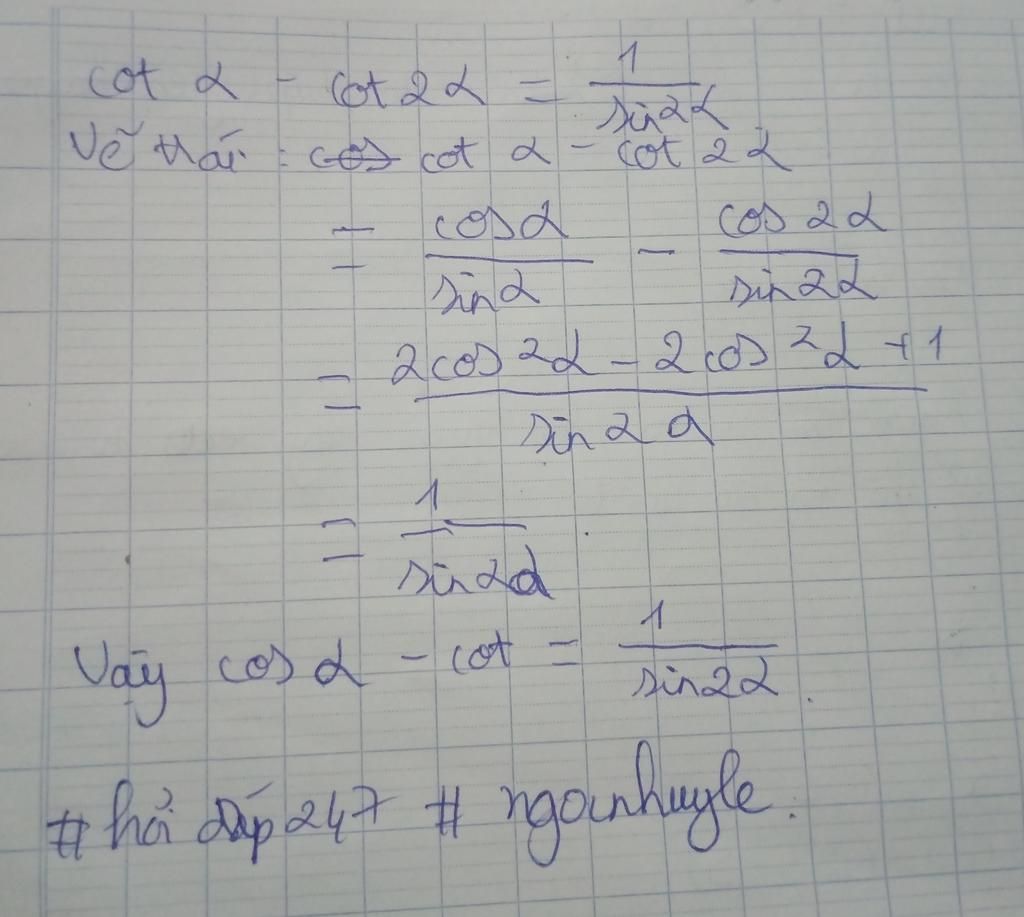 cot α - cot 2α = 1/sin2α
Vế trái: cos cot α - cot 2α
= cosα/sinα - cos2α/sin2α
= (2cos²α - 2cos²α + 1)/sin2α
= 1/sin2α.
Vậy cosα - cot = 1/sin2α.
#hỏi đáp247 # ngoanhuyle.